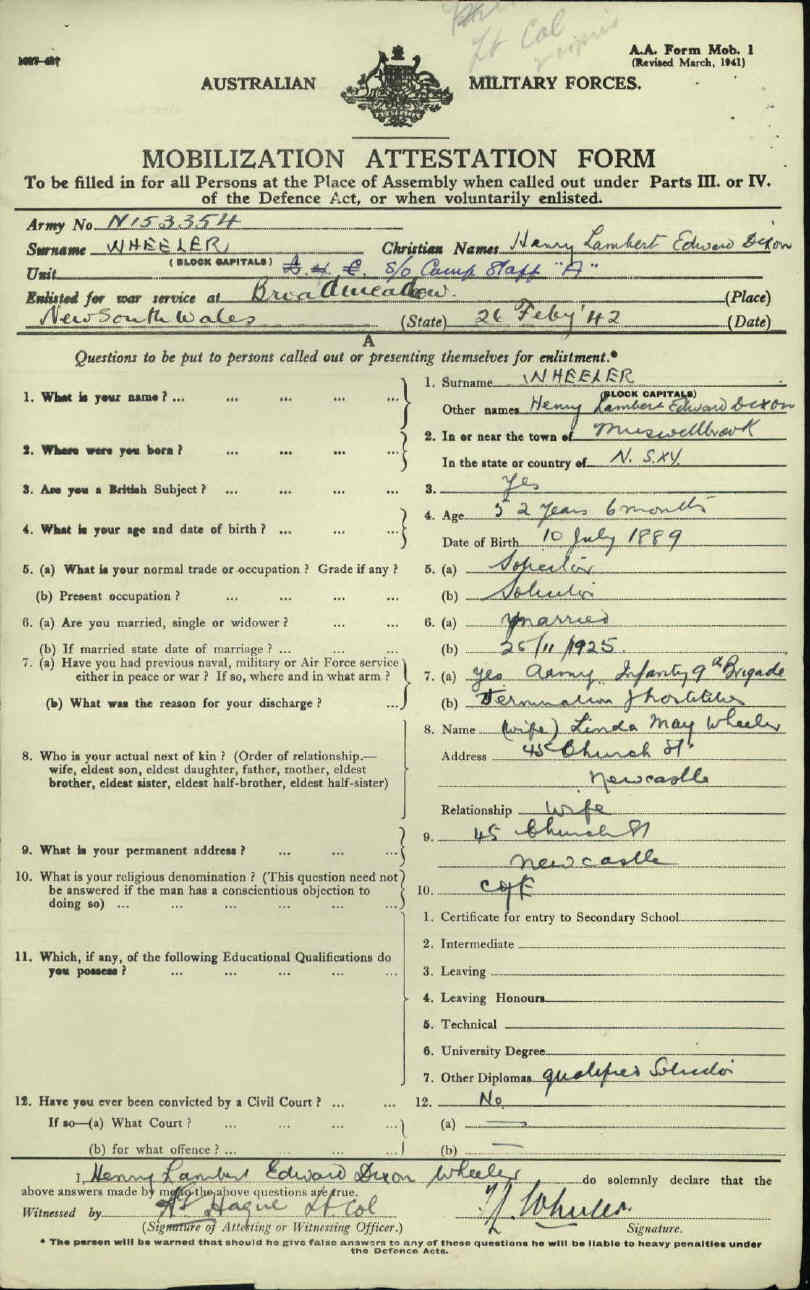 Lt Col
A.A. Form Mob. 1
(Revised March, 1941)
AUSTRALIAN MILITARY FORCES.
MOBILIZATION ATTESTATION FORM
To be filled in for all Persons at the Place of Assembly when called out under Parts III. or IV.
of the Defence Act, or when voluntarily enlisted.
Army No. N153354
Surname WHEELER Christian Names Henry Lambert Edward Dixon
(BLOCK CAPITALS)
Unit S/O Camp Staff "A"
Enlisted for war service at Broadmeadow. (Place)
New South Wales (State) 26 Feby '42 (Date)
A
Questions to be put to persons called out or presenting themselves for enlistment.*
1. What is your name? ... ... ... ... 1. Surname WHEELER
(BLOCK CAPITALS)
Other names Henry Lambert Edward Dixon
2. Where were you born? ... ... ... 2. In or near the town of Muswellbrook
In the state or country of N.S.W.
3. Are you a British Subject? ... ... ... ... 3. Yes
4. What is your age and date of birth? ... ... ... 4. Age 52 years 6 months
Date of Birth 10 July 1889
5. (a) What is your normal trade or occupation? Grade if any? 5. (a) Solicitor
(b) Present occupation? ... ... ... (b) Solicitor
6. (a) Are you married, single or widower? ... ... 6. (a) Married
(b) If married state date of marriage? ... ... ... (b) 25/11/1925.
7. (a) Have you had previous naval, military or Air Force service
either in peace or war? If so, where and in what arm? 7. (a) Yes Army Infantry 9th Brigade
(b) What was the reason for your discharge? ... (b) Termination of hostilities
8. Name (wife) Linda May Wheeler
8. Who is your actual next of kin? (Order of relationship.— Address 45 Church St
wife, eldest son, eldest daughter, father, mother, eldest
brother, eldest sister, eldest half-brother, eldest half-sister) Newcastle
Relationship Wife
9. What is your permanent address? ... ... ... 9. 45 Church St
Newcastle
10. What is your religious denomination? (This question need not
be answered if the man has a conscientious objection to
doing so) ... ... ... ... ... 10. C of E
1. Certificate for entry to Secondary School
2. Intermediate
11. Which, if any, of the following Educational Qualifications do
you possess? ... ... ... ... 3. Leaving
4. Leaving Honours
5. Technical
6. University Degree
7. Other Diplomas qualified Solicitor
12. Have you ever been convicted by a Civil Court? ... ... 12. No
If so—(a) What Court? ... ... ... ... (a) —
(b) for what offence? ... ... ... ... (b) —
I, Henry Lambert Edward Dixon Wheeler do solemnly declare that the
above answers made by me to the above questions are true.
Witnessed by Hague Lt Col Wheeler
(Signature of Attesting or Witnessing Officer.) Signature.
* The person will be warned that should he give false answers to any of these questions he will be liable to heavy penalties under
the Defence Acts.